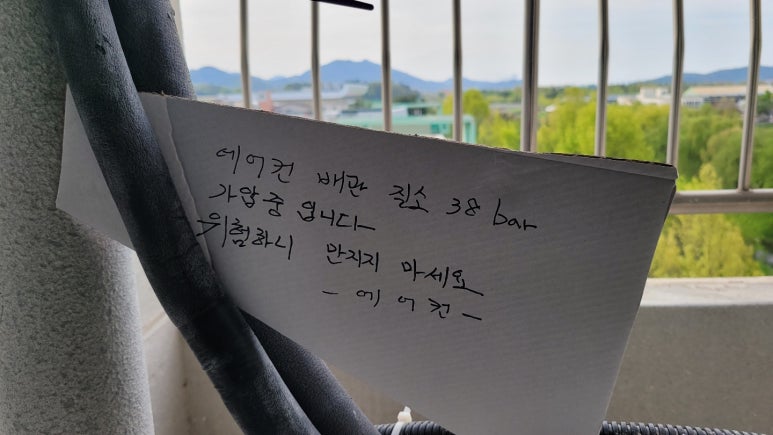 에어컨 배관 질소 38 bar
가압중 입니다
위험하니 만지지 마세요
- 에어컨 -